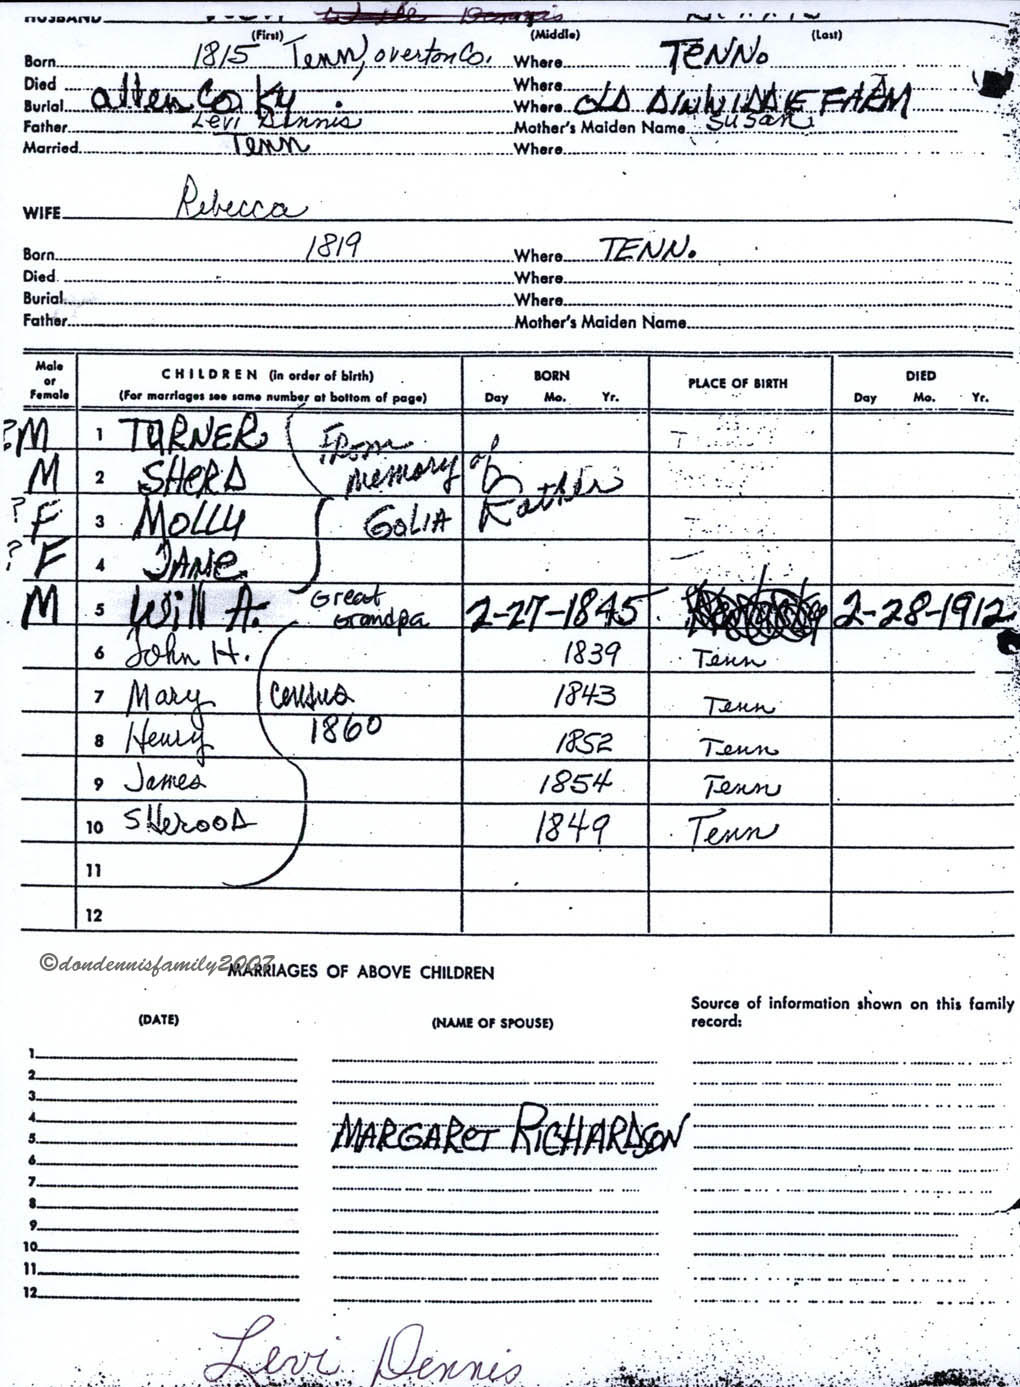 HUSBAND Dennis
(First) (Middle) (Last)
Born 1815 Tenn, Overton Co. Where TENN.
Died Where
Burial Allen Co Ky. Where OLD DINWIDDIE FARM
Father Levi Dennis Mother's Maiden Name Susan
Married Tenn Where
WIFE Rebecca
Born 1819 Where TENN.
Died Where
Burial Where
Father Mother's Maiden Name
Male or Female CHILDREN (in order of birth) (For marriages see same number at bottom of page) BORN Day Mo. Yr. PLACE OF BIRTH DIED Day Mo. Yr.
? M 1 TURNER From
M 2 SHERD memory of Father
? F 3 MOLLY GOLIA
? F 4 JANE
M 5 Will A. Great Grandpa 2-27-1845 2-28-1912
6 John H. 1839 Tenn
7 Mary Census 1843 Tenn
8 Henry 1860 1852 Tenn
9 James 1854 Tenn
10 SHerooD 1849 Tenn
11
12
©dondennisfamily2007
MARRIAGES OF ABOVE CHILDREN
(DATE) (NAME OF SPOUSE) Source of information shown on this family record:
1
2
3
4
5 MARGARET RICHARDSON
6
7
8
9
10
11
12
Levi Dennis